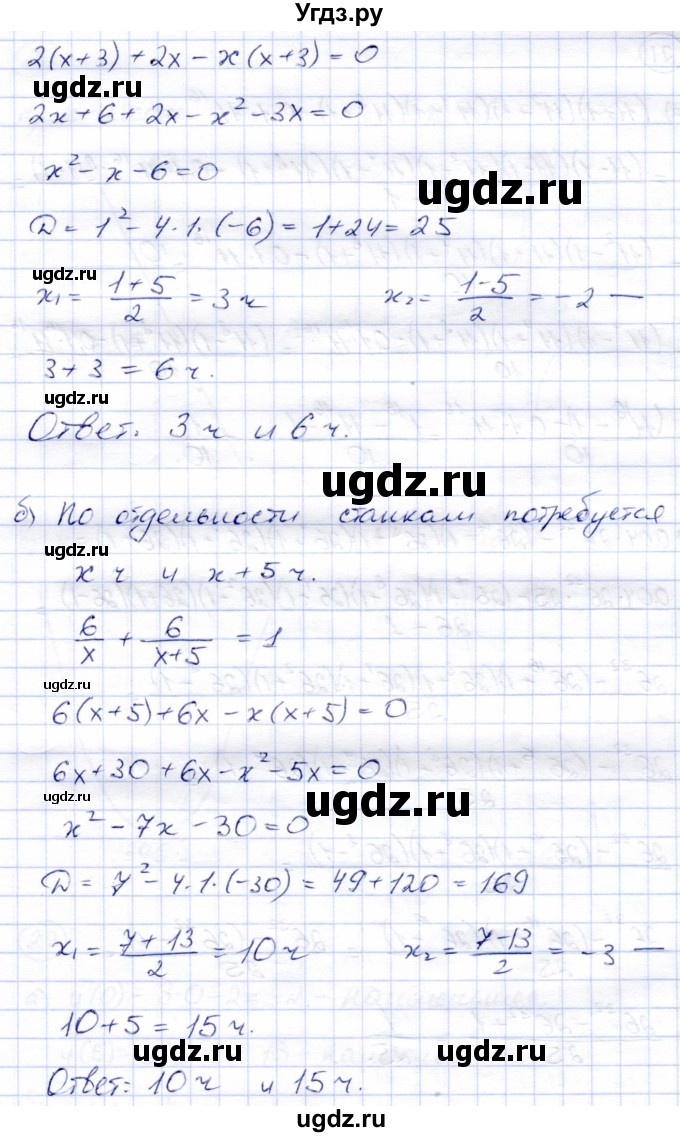 Угдз.ру
2(x+3)+2x-x(x+3)=0
ugdz.ru
2x+6+2x-x²-3x=0
x²-x-6=0
ugdz.ru
D=1²-4·1·(-6)=1+24=25
ugdz.ru
x₁= (1+5)/2 =3ч x₂= (1-5)/2 =-2 —
3+3=6ч.
ugdz.ru
Ответ: 3ч и 6ч.
ugdz.ru
б) По отдельности станкам потребуется
ugdz.ru
x ч и x+5ч.
6/x + 6/(x+5) =1
ugdz.ru
6(x+5)+6x-x(x+5)=0
6x+30+6x-x²-5x=0
ugdz.ru
ugdz.ru
x²-7x-30=0
D=7²-4·1·(-30)=49+120=169
x₁= (7+13)/2 =10ч x₂= (7-13)/2 =-3 —
10+5=15ч.
ugdz.ru
ugdz.ru
Ответ: 10ч и 15ч.
ugdz.ru